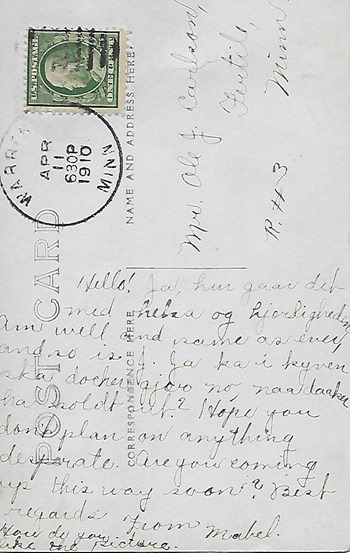 U.S. POSTAGE
ONE CENT
WARREN
APR
11
630P
1910
MINN
POST CARD
NAME AND ADDRESS HERE
CORRESPONDENCE HERE
Mr. Ole J. Carlson,
Fertile,
Minn.
R. # 3
Hello! Ja, hur gaar det
med helsa og kjerligheden
Am well and same as ever
and so is J. Ja ka i kyven
ska docher gjow no, naa daaker
ha soldt ut? Hope you
dont plan on anything
desperate. Are you coming
up this way soon? Best
regards From Mabel.
How do you
like the picture.